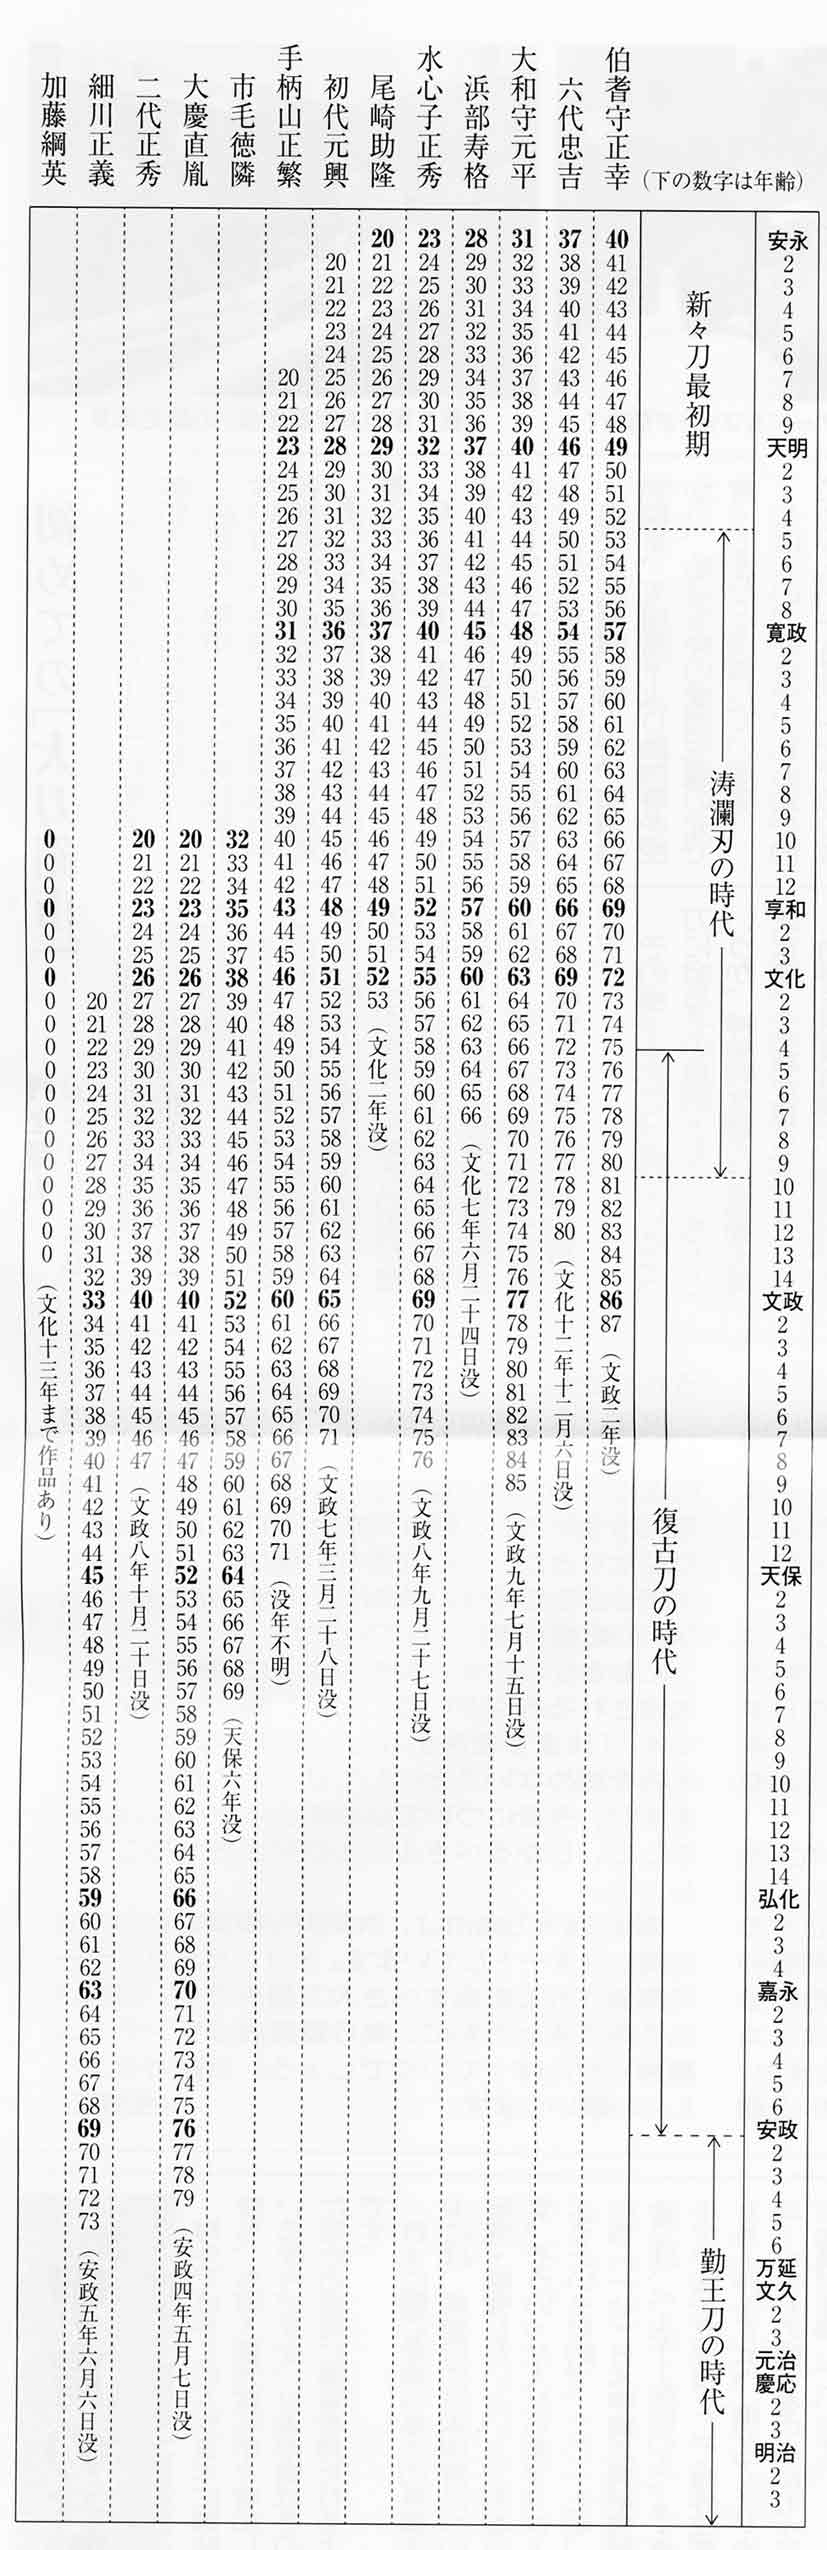 (下の数字は年齢)
安永 2 3 4 5 6 7 8 9 天明 2 3 4 5 6 7 8 寛政 2 3 4 5 6 7 8 9 10 11 12 享和 2 3 文化 2 3 4 5 6 7 8 9 10 11 12 13 14 文政 2 3 4 5 6 7 8 9 10 11 12 天保 2 3 4 5 6 7 8 9 10 11 12 13 14 弘化 2 3 4 嘉永 2 3 4 5 6 安政 2 3 4 5 6 万延 文久 2 3 元治 慶応 2 3 明治 2 3
新々刀最初期
涛瀾刃の時代
復古刀の時代
勤王刀の時代
伯耆守正幸 40 41 42 43 44 45 46 47 48 49 50 51 52 53 54 55 56 57 58 59 60 61 62 63 64 65 66 67 68 69 70 71 72 73 74 75 76 77 78 79 80 81 82 83 84 85 86 87 (文政二年没)
六代忠吉 37 38 39 40 41 42 43 44 45 46 47 48 49 50 51 52 53 54 55 56 57 58 59 60 61 62 63 64 65 66 67 68 69 70 71 72 73 74 75 76 77 78 79 80 (文化十二年十二月六日没)
大和守元平 31 32 33 34 35 36 37 38 39 40 41 42 43 44 45 46 47 48 49 50 51 52 53 54 55 56 57 58 59 60 61 62 63 64 65 66 67 68 69 70 71 72 73 74 75 76 77 78 79 80 81 82 83 84 85 (文政九年七月十五日没)
浜部寿格 28 29 30 31 32 33 34 35 36 37 38 39 40 41 42 43 44 45 46 47 48 49 50 51 52 53 54 55 56 57 58 59 60 61 62 63 64 65 66 (文化七年六月二十四日没)
水心子正秀 23 24 25 26 27 28 29 30 31 32 33 34 35 36 37 38 39 40 41 42 43 44 45 46 47 48 49 50 51 52 53 54 55 56 57 58 59 60 61 62 63 64 65 66 67 68 69 70 71 72 73 74 75 76 (文政八年九月二十七日没)
尾崎助隆 20 21 22 23 24 25 26 27 28 29 30 31 32 33 34 35 36 37 38 39 40 41 42 43 44 45 46 47 48 49 50 51 52 53 (文化二年没)
初代元興 20 21 22 23 24 25 26 27 28 29 30 31 32 33 34 35 36 37 38 39 40 41 42 43 44 45 46 47 48 49 50 51 52 53 54 55 56 57 58 59 60 61 62 63 64 65 66 67 68 69 70 71 (文政七年三月二十八日没)
手柄山正繁 20 21 22 23 24 25 26 27 28 29 30 31 32 33 34 35 36 37 38 39 40 41 42 43 44 45 46 47 48 49 50 51 52 53 54 55 56 57 58 59 60 61 62 63 64 65 66 67 68 69 70 71 (没年不明)
市毛徳隣 32 33 34 35 36 37 38 39 40 41 42 43 44 45 46 47 48 49 50 51 52 53 54 55 56 57 58 59 60 61 62 63 64 65 66 67 68 69 (天保六年没)
大慶直胤 20 21 22 23 24 25 26 27 28 29 30 31 32 33 34 35 36 37 38 39 40 41 42 43 44 45 46 47 48 49 50 51 52 53 54 55 56 57 58 59 60 61 62 63 64 65 66 67 68 69 70 71 72 73 74 75 76 77 78 79 (安政四年五月七日没)
二代正秀 20 21 22 23 24 25 26 27 28 29 30 31 32 33 34 35 36 37 38 39 40 41 42 43 44 45 46 47 (文政八年十月二十日没)
細川正義 20 21 22 23 24 25 26 27 28 29 30 31 32 33 34 35 36 37 38 39 40 41 42 43 44 45 46 47 48 49 50 51 52 53 54 55 56 57 58 59 60 61 62 63 64 65 66 67 68 69 70 71 72 73 (安政五年六月六日没)
加藤綱英 0 0 0 0 0 0 0 0 0 0 0 0 0 0 0 0 0 0 0 (文化十三年まで作品あり)